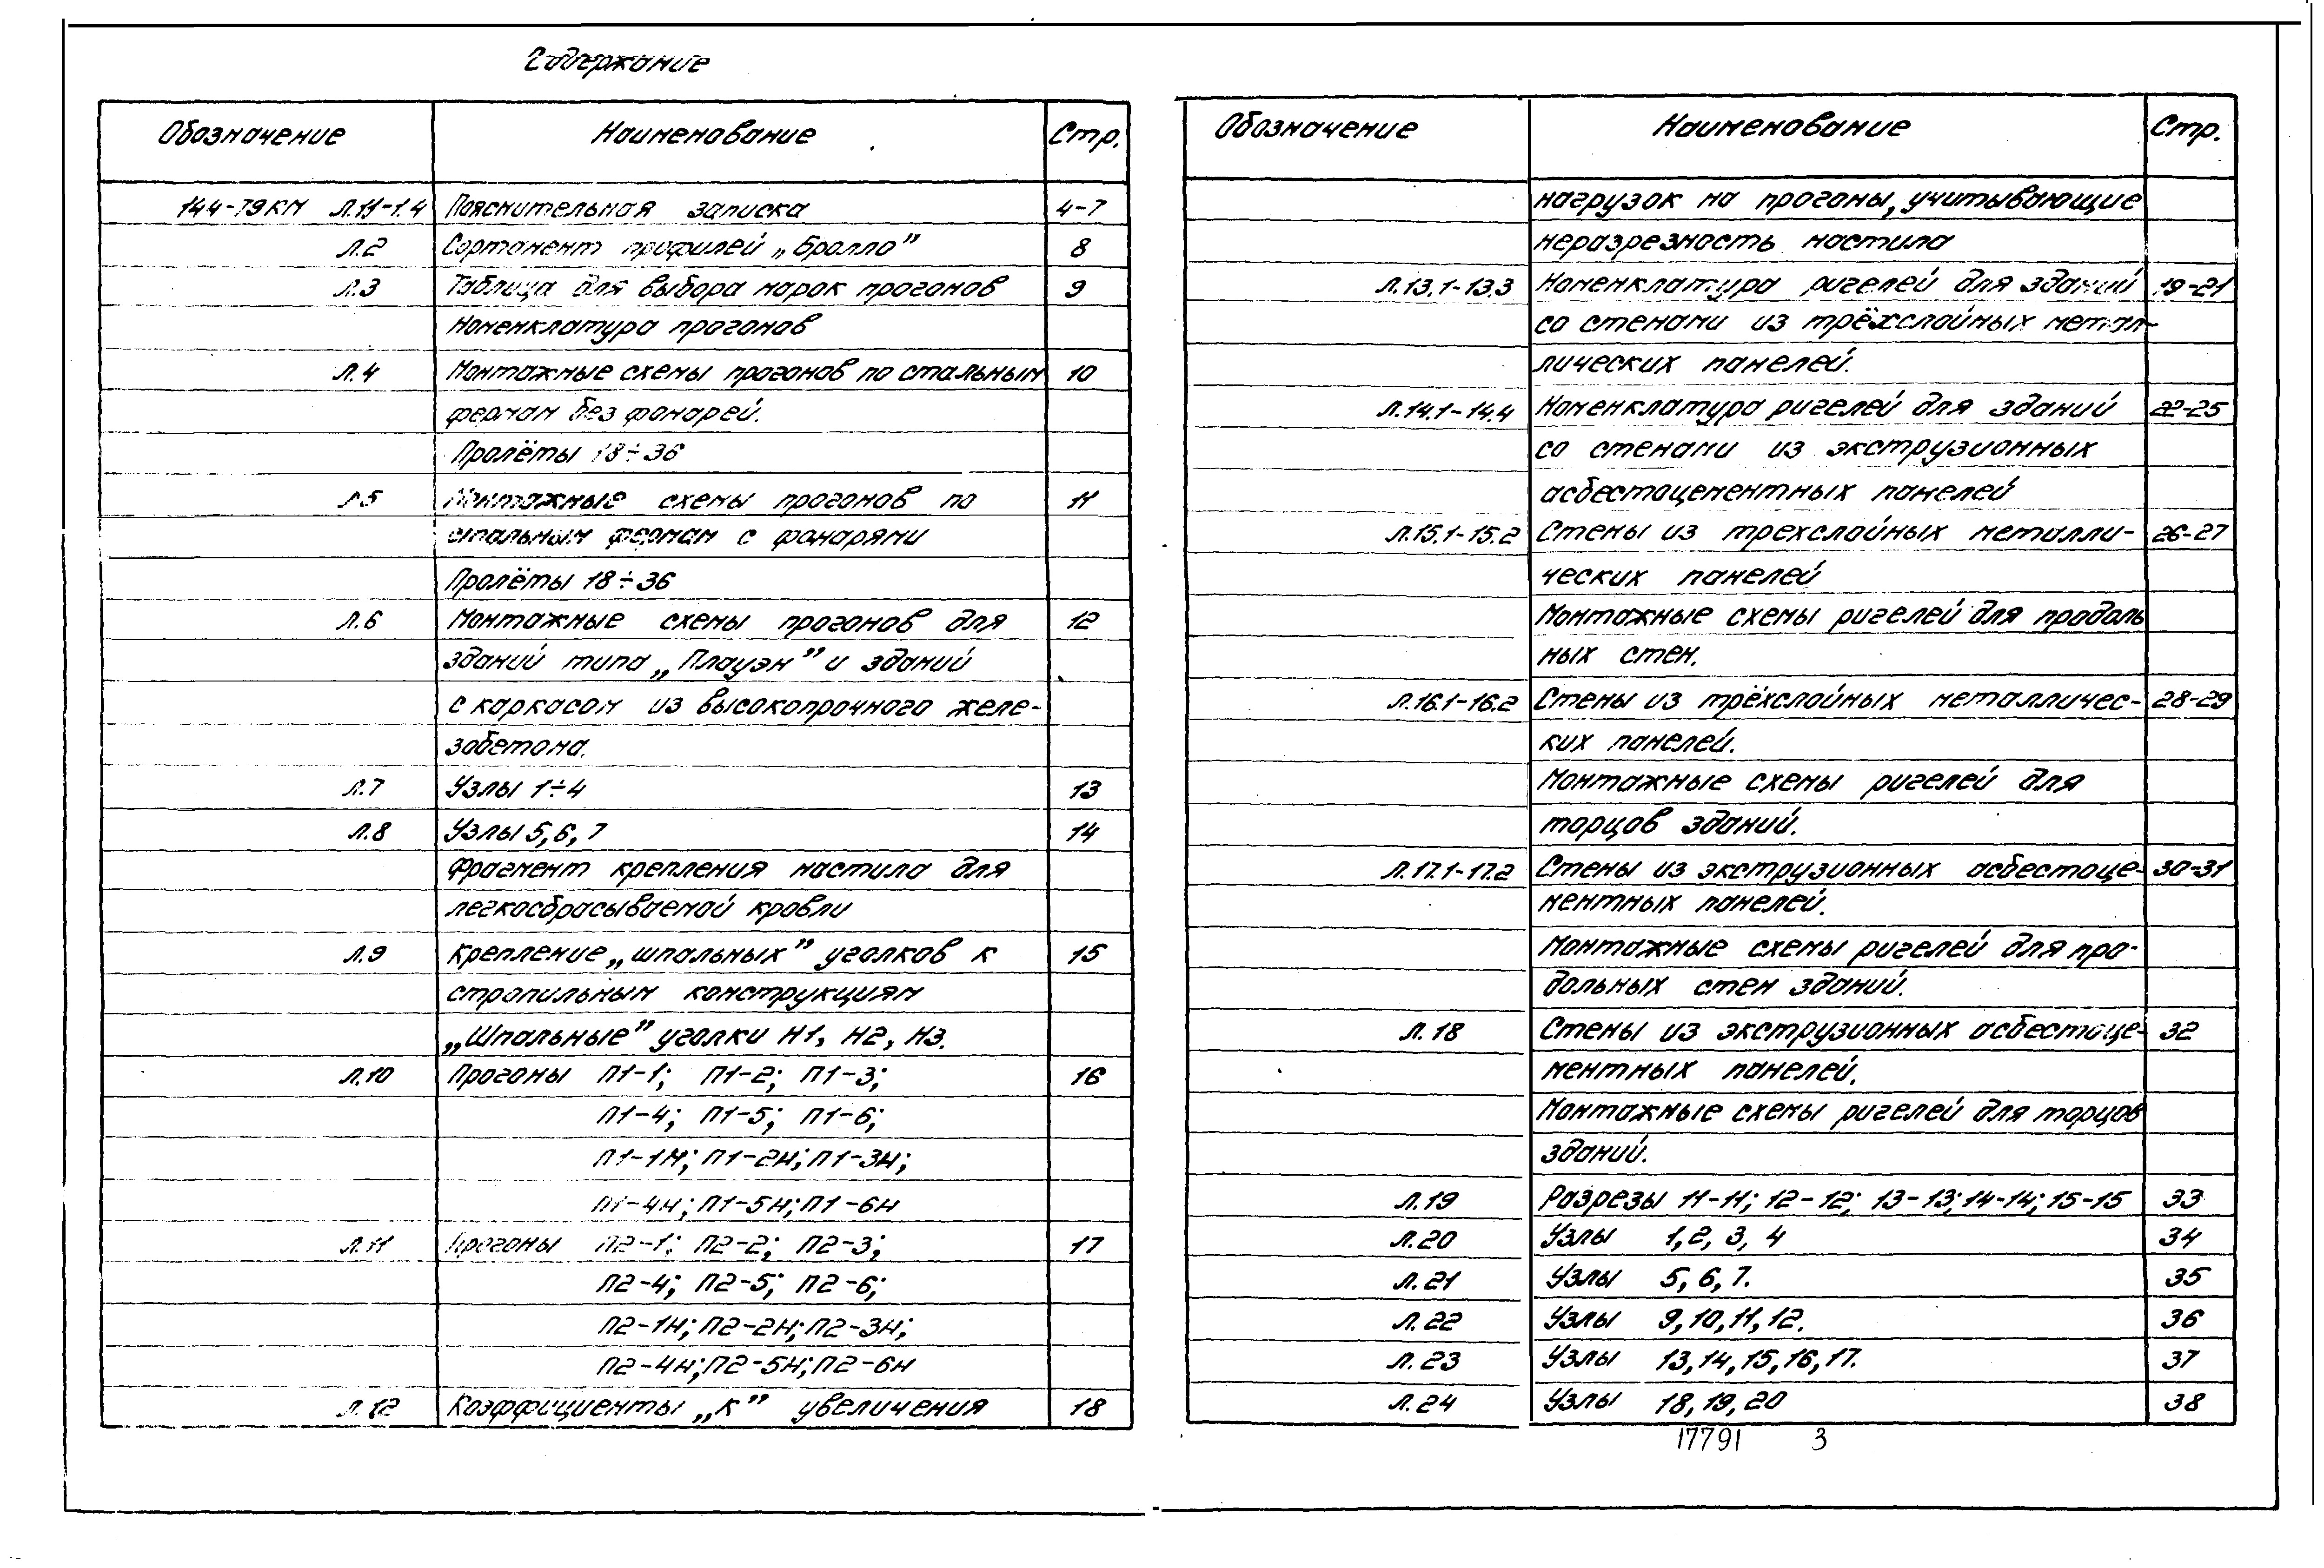 Содержание
Обозначение Наименование Стр.
144-79КМ Л.1.1-1.4 Пояснительная записка 4-7
Л.2 Сортамент профилей „Бралло” 8
Л.3 Таблица для выбора марок прогонов 9
Номенклатура прогонов
Л.4 Монтажные схемы прогонов по стальным 10
фермам без фонарей.
Пролёты 18÷36
Л.5 Монтажные схемы прогонов по 11
стальным фермам с фонарями
Пролёты 18÷36
Л.6 Монтажные схемы прогонов для 12
зданий типа „Плауэн” и зданий
с каркасом из высокопрочного желе-
зобетона.
Л.7 Узлы 1÷4 13
Л.8 Узлы 5, 6, 7 14
Фрагмент крепления настила для
легкосбрасываемой кровли
Л.9 Крепление „шпальных” уголков к 15
стропильным конструкциям
„Шпальные” уголки Н1, Н2, Н3.
Л.10 Прогоны П1-1; П1-2; П1-3; 16
П1-4; П1-5; П1-6;
П1-1Н; П1-2Н; П1-3Н;
П1-4Н; П1-5Н; П1-6Н
Л.11 Прогоны П2-1; П2-2; П2-3; 17
П2-4; П2-5; П2-6;
П2-1Н; П2-2Н; П2-3Н;
П2-4Н; П2-5Н; П2-6Н
Л.12 Коэффициенты „К” увеличения 18
Обозначение Наименование Стр.
нагрузок на прогоны, учитывающие
неразрезность настила
Л.13.1-13.3 Номенклатура ригелей для зданий 19-21
со стенами из трёхслойных метал-
лических панелей.
Л.14.1-14.4 Номенклатура ригелей для зданий 22-25
со стенами из экструзионных
асбестоцементных панелей
Л.15.1-15.2 Стены из трехслойных металли- 26-27
ческих панелей
Монтажные схемы ригелей для продоль
ных стен.
Л.16.1-16.2 Стены из трёхслойных металличес- 28-29
ких панелей.
Монтажные схемы ригелей для
торцов зданий.
Л.17.1-17.2 Стены из экструзионных асбестоце- 30-31
ментных панелей.
Монтажные схемы ригелей для про-
дольных стен зданий.
Л.18 Стены из экструзионных асбестоце- 32
ментных панелей.
Монтажные схемы ригелей для торцов
зданий.
Л.19 Разрезы 11-11; 12-12; 13-13; 14-14; 15-15 33
Л.20 Узлы 1, 2, 3, 4 34
Л.21 Узлы 5, 6, 7. 35
Л.22 Узлы 9, 10, 11, 12. 36
Л.23 Узлы 13, 14, 15, 16, 17. 37
Л.24 Узлы 18, 19, 20 38
17791 3